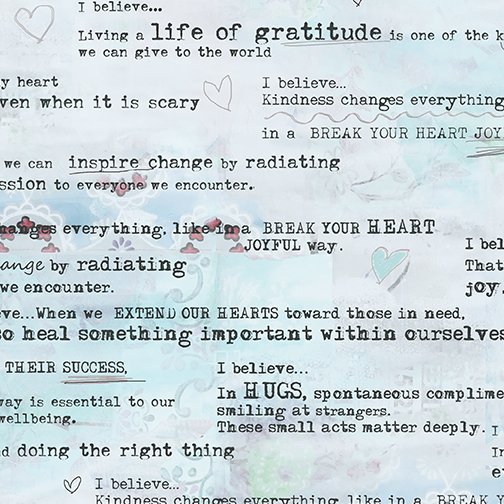 I believe...
Living a life of gratitude is one of the k
we can give to the world
y heart
ven when it is scary
I believe...
Kindness changes everything
in a BREAK YOUR HEART JOY
we can inspire change by radiating
ssion to everyone we encounter.
hanges everything, like in a BREAK YOUR HEART
JOYFUL way.
ange by radiating
we encounter.
I bel
That
joy.
eve...When we EXTEND OUR HEARTS toward those in need,
so heal something important within ourselves
THEIR SUCCESS,
way is essential to our
wellbeing.
d doing the right thing
I believe...
In HUGS, spontaneous complime
smiling at strangers.
These small acts matter deeply.
I
In
e
I believe...
Kindness changes everything like in a BREAK